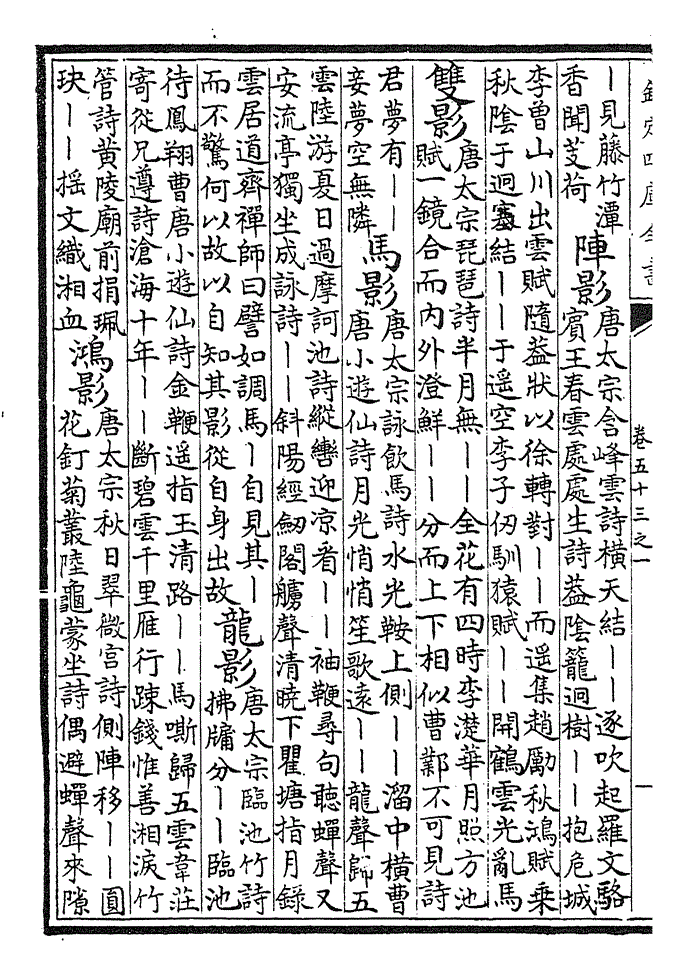 欽定四庫全書
卷五十三之一
一
｜見藤竹潭
香聞芰荷
陣影
唐太宗含峰雲詩橫天結｜｜逐吹起羅文駱
賓王春雲處處生詩葢陰籠迥樹｜｜抱危城
李曽山川出雲賦隨葢狀以徐轉對｜｜而遥集趙勵秋鴻賦乗
秋陰于迥塞結｜｜于遥空李子仞馴猿賦｜｜開鶴雲光亂馬
雙影
唐太宗琵琶詩半月無｜｜全花有四時李濋華月照方池
賦一鏡合而内外澄鮮｜｜分而上下相似曹鄴不可見詩
君夢有｜｜
妾夢空無隣
馬影
唐太宗詠飲馬詩水光鞍上側｜｜溜中橫曹
唐小遊仙詩月光悄悄笙歌遠｜｜龍聲歸五
雲陸游夏日過摩訶池詩縱轡迎凉看｜｜袖鞭尋句聽蟬聲又
安流亭獨坐成詠詩｜｜斜陽經劔閣艣聲清曉下瞿塘指月錄
雲居道齊禪師曰譬如調馬｜自見其｜
而不驚何以故以自知其影從自身出故
龍影
唐太宗臨池竹詩
拂牖分｜｜臨池
待鳳翔曹唐小遊仙詩金鞭遥指玉清路｜｜馬嘶歸五雲韋莊
寄從兄遵詩滄海十年｜｜斷碧雲千里雁行踈錢惟善湘淚竹
管詩黄陵廟前捐珮
玦｜｜揺文織湘血
鴻影
唐太宗秋日翠微宫詩側陣移｜｜圓
花釘菊叢陸龜蒙坐詩偶避蟬聲來隙